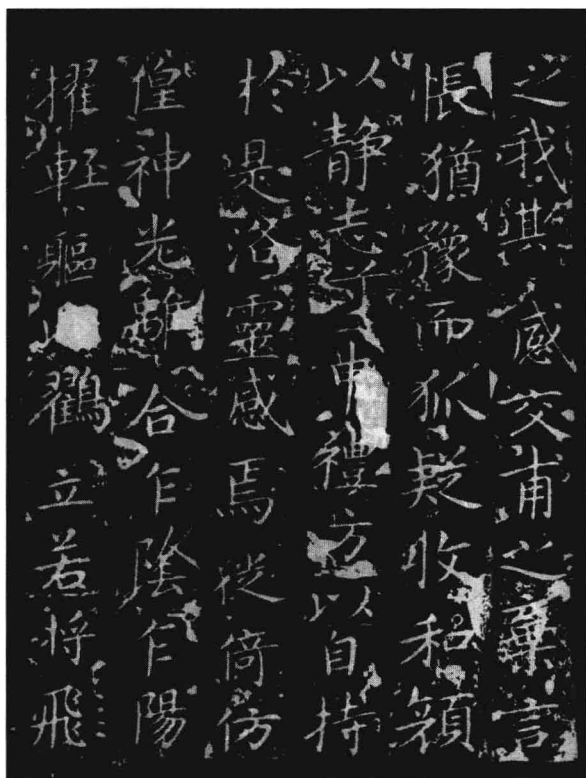 之我欺感交甫之棄言
悵猶豫而狐疑收和顏
以静志兮申禮防以自持
於是洛靈感焉徙倚仿
偟神光離合乍陰乍陽
擢輕軀以鶴立若將飛